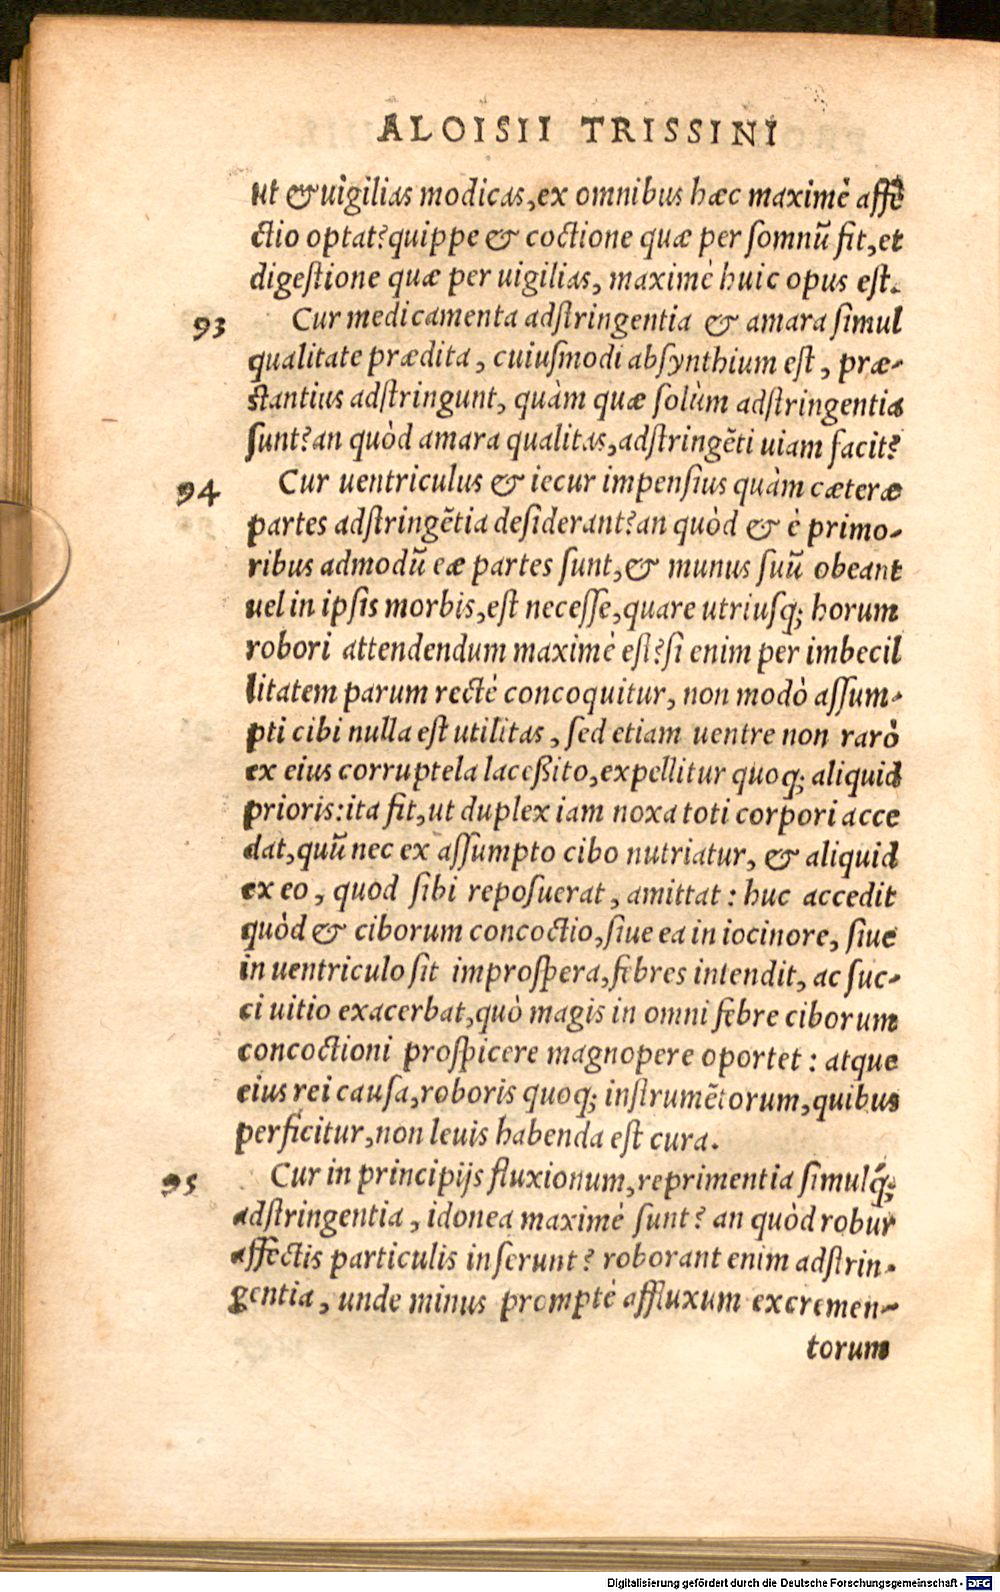 ALOISII TRISSINI
ut & uigilias modicas, ex omnibus hæc maximè affe
ctio optat? quippe & coctione quæ per somnũ fit, et
digestione quæ per uigilias, maximè huic opus est.
93 Cur medicamenta adstringentia & amara simul
qualitate prædita, cuiusmodi absynthium est, præ-
stantius adstringunt, quàm quæ solùm adstringentia
sunt? an quòd amara qualitas, adstringẽti uiam facit?
94 Cur uentriculus & iecur impensius quàm cæteræ
partes adstringẽtia desiderant? an quòd & è primo-
ribus admodũ eæ partes sunt, & munus suũ obeant
uel in ipsis morbis, est necesse, quare utriusq; horum
robori attendendum maximè est? si enim per imbecil
litatem parum rectè concoquitur, non modò assum-
pti cibi nulla est utilitas, sed etiam uentre non rarò
ex eius corruptela laceßito, expellitur quoq; aliquid
prioris: ita fit, ut duplex iam noxa toti corpori acce
dat, quũ nec ex assumpto cibo nutriatur, & aliquid
ex eo, quod sibi reposuerat, amittat: huc accedit
quòd & ciborum concoctio, siue ea in iocinore, siue
in uentriculo sit improspera, febres intendit, ac suc-
ci uitio exacerbat, quò magis in omni febre ciborum
concoctioni prospicere magnopere oportet: atque
eius rei causa, roboris quoq; instrumẽtorum, quibus
perficitur, non leuis habenda est cura.
95 Cur in principijs fluxionum, reprimentia simulq́;
adstringentia, idonea maximè sunt? an quòd robur
affectis particulis inserunt? roborant enim adstrin-
gentia, unde minus promptè affluxum excremen-
torum
Digitalisierung gefördert durch die Deutsche Forschungsgemeinschaft - DFG